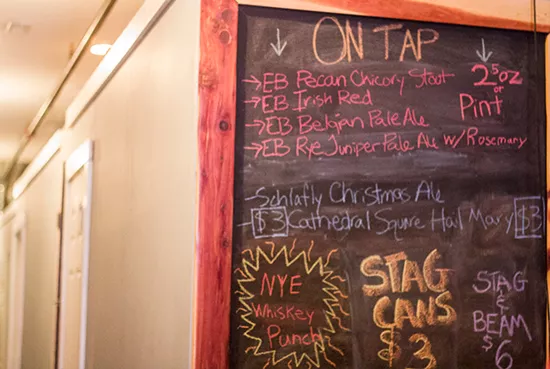 ON TAP
→EB Pecan Chicory Stout
→EB Irish Red
→EB Belgian Pale Ale
→EB Rye Juniper Pale Ale w/ Rosemary
2.5oz
or
Pint
-Schlafly Christmas Ale
-$3 Cathedral Square Hail Mary $3
NYE
Whiskey
Punch
STAG
CANS
$3
STAG
&
BEAM
$6